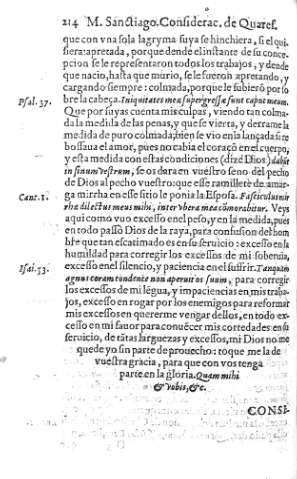 214 M. Sanctiago. Considerac. de Quares.
que con vna sola lagryma suya se hinchiera, si el qui-
siera: apretada, porque dende el instante de su conce-
pcion se le representaron todos los trabajos, y dende
que nacio, hasta que murio, se le fueron apretando, y
cargando siempre: colmada, porque le subierõ por so
Psal. 37. bre la cabeça. Iniquitates meæ supergressæ sunt caput meum.
Que por suyas cuenta mis culpas, viendo tan colma-
da la medida de las penas, y que se vierta, y derrame la
medida de puro colmada, bien se vio en la lançada si re
bossaua el amor, pues no cabia el coraçõ en el cuerpo,
y esta medida con estas condiciones (dize Dios) dabũt
in sinum vestrum, se os dara en vuestro seno del pecho
de Dios al pecho vuestro: que esse ramillete de amar-
Cant. 1. ga mirrha en esse sitio le ponia la Esposa. Fasciculus mir
rhæ dilectus meus mihi, inter vbera mea comorabitur. Veys
aqui como vuo excesso en el peso, y en la medida, pues
en todo passò Dios de la raya, para confusion del hom
bre que tan escatimado es en su seruicio: excesso en la
humildad para corregir los excessos de mi soberuia,
Isai. 53. excesso en el silencio, y paciencia en el sufrir. Tanquam
agnus coram tondente non aperuit os suum, para corregir
los excessos de mi lẽgua, y impaciencias en mis traba-
jos, excesso en rogar por los enemigos para reformar
mis excessos en quererme vengar dellos, en todo ex-
cesso en mi fauor para conuẽcer mis cortedades en su
seruicio, de tãtas larguezas y excessos, mi Dios no me
quede yo sin parte de prouecho: toque me la de
vuestra gracia, para que con vos tenga
parte en la gloria. Quam mihi
& vobis, &c.
CONSI-